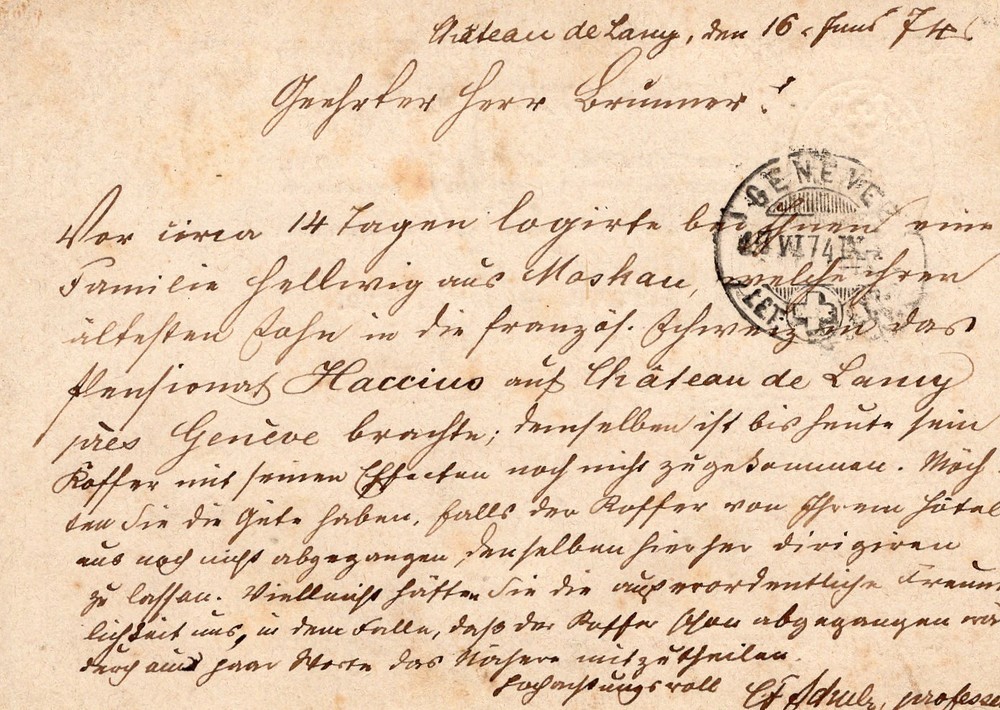 Château de Lancy, den 16. Juni 74.
Geehrter Herr Brunner!
GENEVE
VI 74 IX
Vor circa 14 Tagen logirte bei Ihnen eine
Familie Hellwig aus Moskau, welche ihren
ältesten Sohn in die französ. Schweiz in das
Pensionat Haccius auf Château de Lancy
près Genève brachte; demselben ist bis heute sein
Koffer mit seinen Effecten noch nicht zugekommen. Möch-
ten Sie die Güte haben, falls der Koffer von Ihrem Hôtel
aus noch nicht abgegangen, denselben hierher dirigiren
zu lassen. Vielleicht hätten Sie die außerordentliche Freund
lichkeit uns, in dem Falle, daß der Koffer schon abgegangen
durch ein paar Worte das Nähere mitzutheilen.
Hochachtungsvoll
Schulz, professe